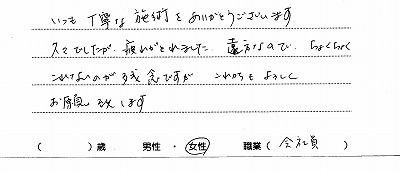 いつも丁寧な施術をありがとうございます
でしたが、疲れがとれました。遠方なので、ちょくちょく
これないのが残念ですが これからもよろしく
お願い致します
(　　　)歳　男性・女性　職業(会社員)